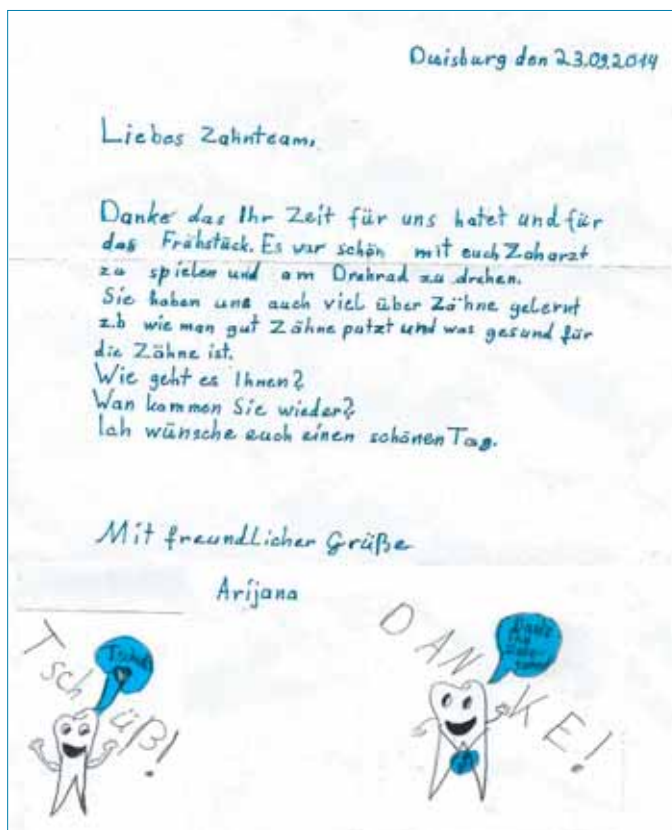 Duisburg den 23.09.2014
Liebes Zahnteam,
Danke das Ihr Zeit für uns hatet und für
das Frühstück. Es war schön mit euch Zaharzt
zu spielen und am Drehrad zu drehen.
Sie haben uns auch viel über Zähne gelernt
z.b wie man gut Zähne putzt und was gesund für
die Zähne ist.
Wie geht es Ihnen?
Wan kommen Sie wieder?
Ich wünsche euch einen schönen Tag.
Mit freundlicher Grüße
Arijana
Tschüß!
DANKE!